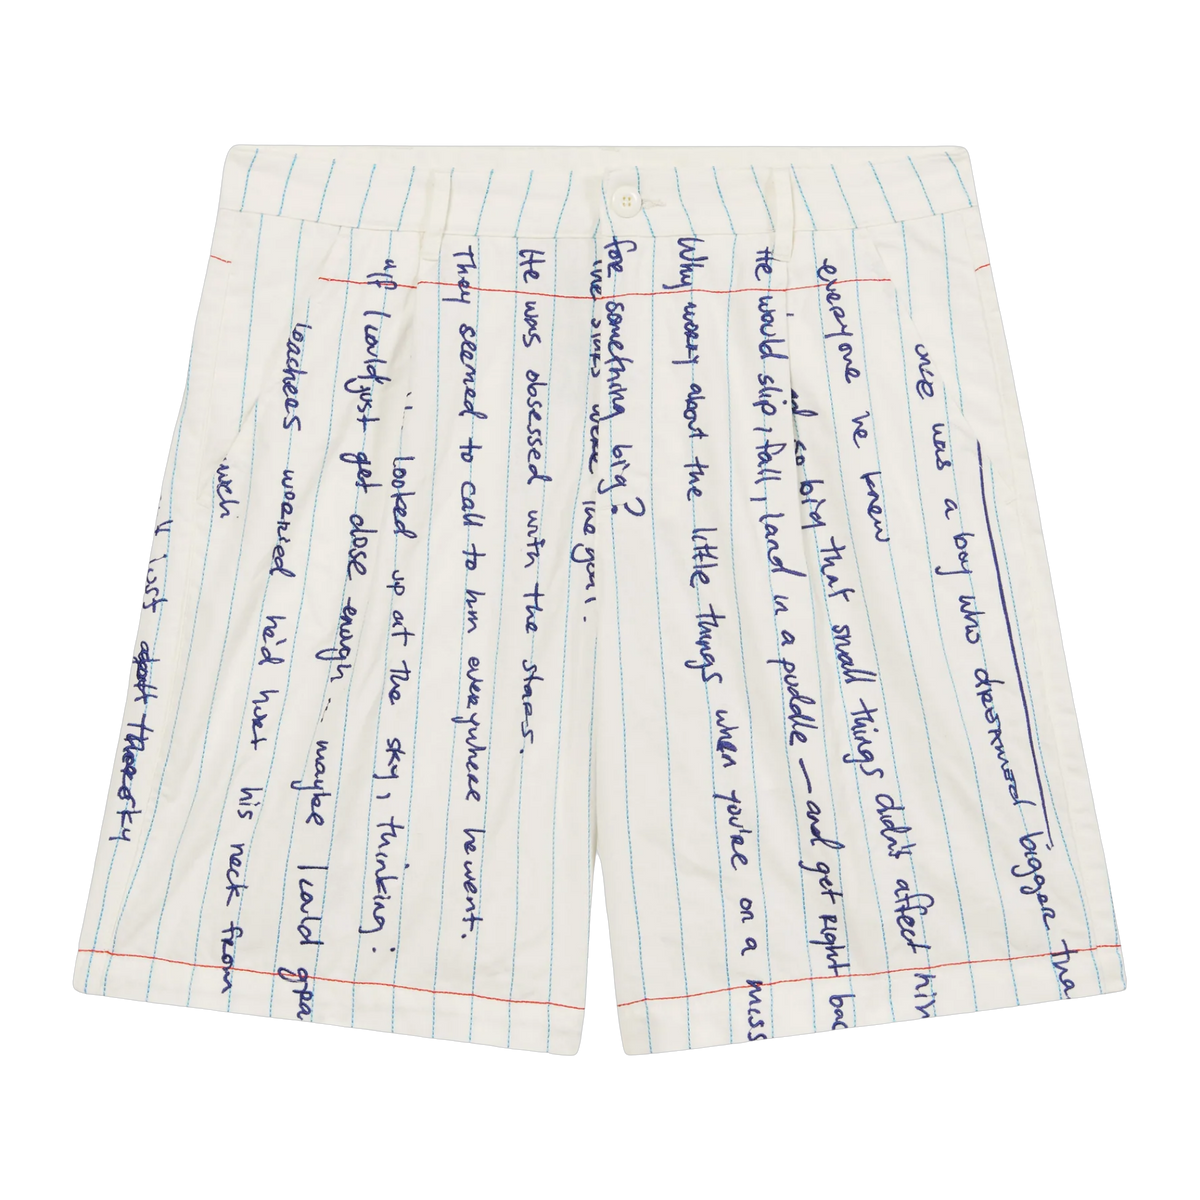 once was a boy who dreamed bigger tha
everyone he knew
so big that small things didn't affect him
He would slip, fall, land in a puddle — and get right bac
Why worry about the little things when you're on a miss
for something big?
He was obsessed with the stars.
They seemed to call to him everywhere he went.
looked up at the sky, thinking:
"If I could just get close enough... maybe I could gra
teachers worried he'd hurt his neck from